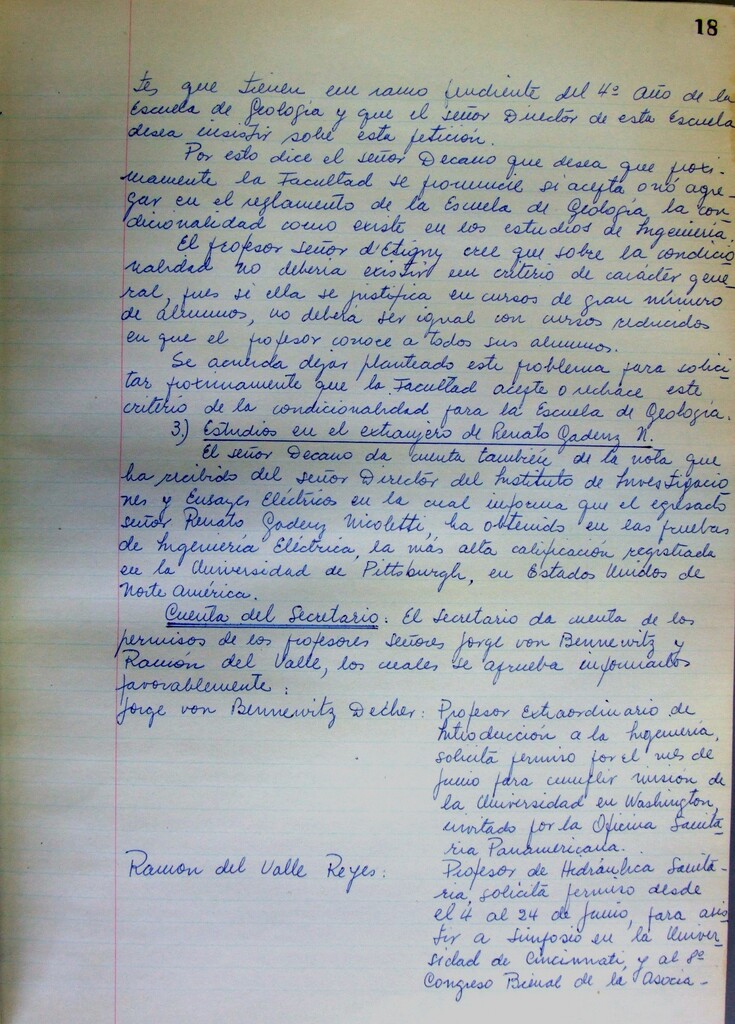 18
tes que tienen un ramo pendiente del 4º año de la
Escuela de Geología y que el señor Director de esta Escuela
desea insistir sobre esta petición.
Por esto dice el señor Decano que desea que proxi-
mamente la Facultad se pronuncie si acepta o nó agre-
gar en el reglamento de la Escuela de Geología la con
dicionalidad como existe en los estudios de Ingeniería.
El profesor señor d'Etigny cree que sobre la condicio
nalidad no debería existir un criterio de carácter gene-
ral, pues si ella se justifica en cursos de gran número
de alumnos, no debería ser igual con cursos reducidos
en que el profesor conoce a todos sus alumnos.
Se acuerda dejar planteado este problema para solici-
tar proximamente que la Facultad acepte o rechace este
criterio de la condicionalidad para la Escuela de Geología.
3.) Estudios en el extranjero de Renato Gadenz N.
El señor Decano da cuenta también de la nota que
ha recibido del señor Director del Instituto de Investigacio
nes y Ensayes Eléctricos en la cual informa que el egresado
señor Renato Gadenz Nicoletti, ha obtenido en las pruebas
de Ingeniería Eléctrica, la más alta calificación registrada
en la Universidad de Pittsburgh, en Estados Unidos de
Norte América.
Cuenta del Secretario: El Secretario da cuenta de los
permisos de los profesores señores Jorge von Bennewitz y
Ramón del Valle, los cuales se aprueba informarlos
favorablemente:
Jorge von Bennewitz Decher: Profesor Extraordinario de
Introducción a la Ingeniería,
solicita permiso por el mes de
Junio para cumplir misión de
la Universidad en Washington,
invitado por la Oficina Sanita-
ria Panamericana.
Ramon del Valle Reyes: Profesor de Hidráulica Sanita-
ria, solicita permiso desde
el 4 al 24 de Junio, para asis
tir a Simposio en la Univer-
sidad de Cincinnati, y al 8º
Congreso Bienal de la Asocia-